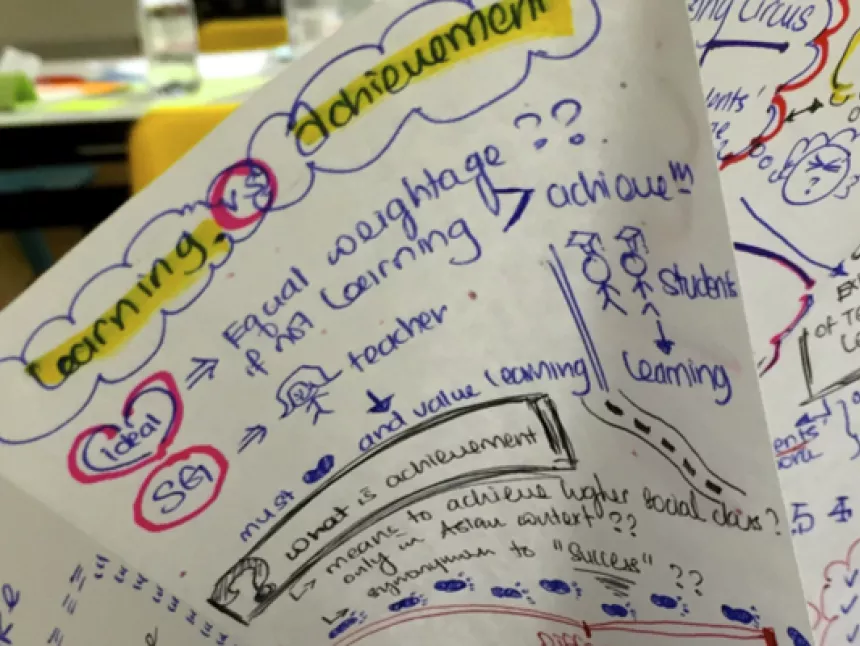 Learning vs achievement
Ideal ⇒ Equal weightage ??
if not Learning > achievem
SG ⇒ teacher
must and value learning
students
learning
What is achievement
?
↳ means to achieve higher social class?
only in Asian context??
↳ synonymous to "success" ??
ing Circus
5 4